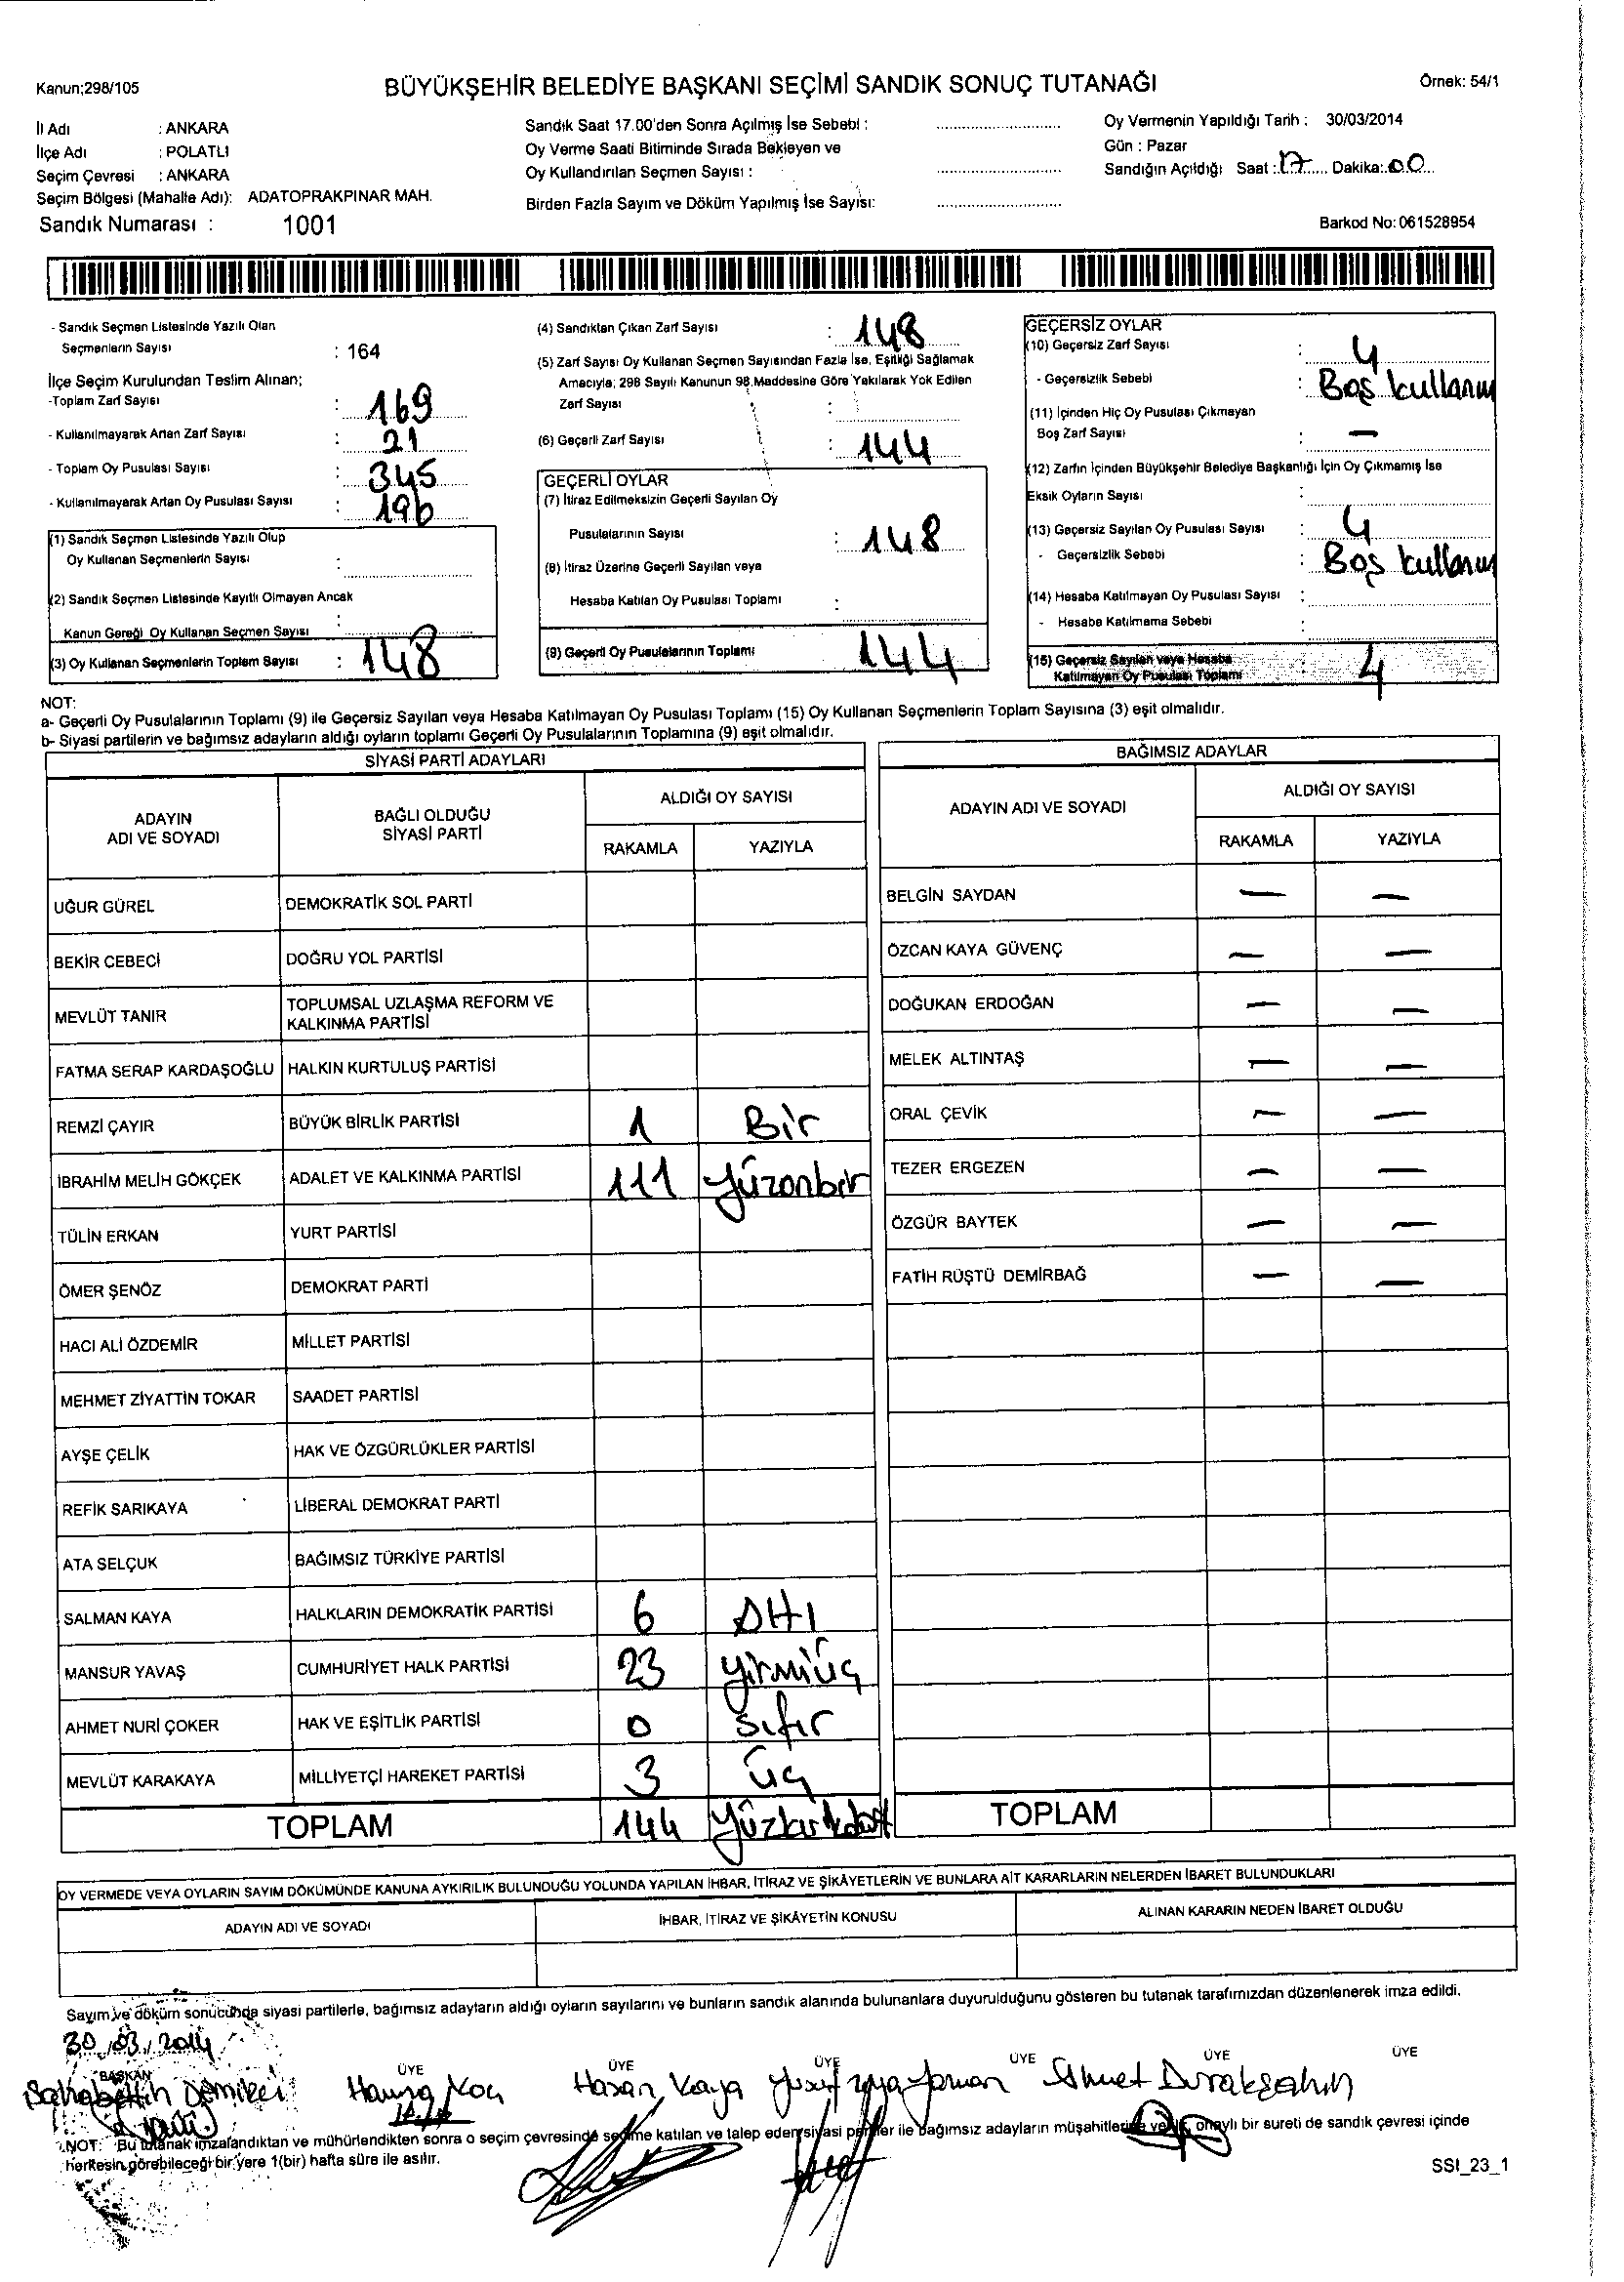 Kanun;298/105
BÜYÜKŞEHİR BELEDİYE BAŞKANI SEÇİMİ SANDIK SONUÇ TUTANAĞI
Örnek: 54/1
İl Adı : ANKARA
İlçe Adı : POLATLI
Seçim Çevresi : ANKARA
Seçim Bölgesi (Mahalle Adı): ADATOPRAKPINAR MAH.
Sandık Numarası : 1001
Sandık Saat 17.00'den Sonra Açılmış İse Sebebi :
Oy Verme Saati Bitiminde Sırada Bekleyen ve
Oy Kullandırılan Seçmen Sayısı :
Birden Fazla Sayım ve Döküm Yapılmış İse Sayısı:
Oy Vermenin Yapıldığı Tarih : 30/03/2014
Gün : Pazar
Sandığın Açıldığı Saat : 17 Dakika: 00
Barkod No: 061528954
- Sandık Seçmen Listesinde Yazılı Olan
Seçmenlerin Sayısı : 164
İlçe Seçim Kurulundan Teslim Alınan;
-Toplam Zarf Sayısı : 169
- Kullanılmayarak Artan Zarf Sayısı : 21
- Toplam Oy Pusulası Sayısı : 345
- Kullanılmayarak Artan Oy Pusulası Sayısı : 196
(1) Sandık Seçmen Listesinde Yazılı Olup
Oy Kullanan Seçmenlerin Sayısı :
(2) Sandık Seçmen Listesinde Kayıtlı Olmayan Ancak
Kanun Gereği Oy Kullanan Seçmen Sayısı :
(3) Oy Kullanan Seçmenlerin Toplam Sayısı : 148
(4) Sandıktan Çıkan Zarf Sayısı : 148
(5) Zarf Sayısı Oy Kullanan Seçmen Sayısından Fazla İse, Eşitliği Sağlamak
Amacıyla; 298 Sayılı Kanunun 98.Maddesine Göre Yakılarak Yok Edilen
Zarf Sayısı :
(6) Geçerli Zarf Sayısı : 144
GEÇERLİ OYLAR
(7) İtiraz Edilmeksizin Geçerli Sayılan Oy
Pusulalarının Sayısı : 148
(8) İtiraz Üzerine Geçerli Sayılan veya
Hesaba Katılan Oy Pusulası Toplamı :
(9) Geçerli Oy Pusulalarının Toplamı 144
GEÇERSİZ OYLAR
(10) Geçersiz Zarf Sayısı : 4
- Geçersizlik Sebebi : Boş kullanım
(11) İçinden Hiç Oy Pusulası Çıkmayan
Boş Zarf Sayısı : —
(12) Zarfın İçinden Büyükşehir Belediye Başkanlığı İçin Oy Çıkmamış İse
Eksik Oyların Sayısı :
(13) Geçersiz Sayılan Oy Pusulası Sayısı : 4
- Geçersizlik Sebebi : Boş kullanım
(14) Hesaba Katılmayan Oy Pusulası Sayısı :
- Hesaba Katılmama Sebebi :
(15) Geçersiz Sayılan veya Hesaba
Katılmayan Oy Pusulası Toplamı : 4
NOT:
a- Geçerli Oy Pusulalarının Toplamı (9) ile Geçersiz Sayılan veya Hesaba Katılmayan Oy Pusulası Toplamı (15) Oy Kullanan Seçmenlerin Toplam Sayısına (3) eşit olmalıdır.
b- Siyasi partilerin ve bağımsız adayların aldığı oyların toplamı Geçerli Oy Pusulalarının Toplamına (9) eşit olmalıdır.
SİYASİ PARTİ ADAYLARI
ADAYIN ADI VE SOYADI
BAĞLI OLDUĞU SİYASİ PARTİ
ALDIĞI OY SAYISI
RAKAMLA YAZIYLA
UĞUR GÜREL DEMOKRATİK SOL PARTİ
BEKİR CEBECİ DOĞRU YOL PARTİSİ
MEVLÜT TANIR TOPLUMSAL UZLAŞMA REFORM VE
KALKINMA PARTİSİ
FATMA SERAP KARDAŞOĞLU HALKIN KURTULUŞ PARTİSİ
REMZİ ÇAYIR BÜYÜK BİRLİK PARTİSİ 1 Bir
İBRAHİM MELİH GÖKÇEK ADALET VE KALKINMA PARTİSİ 111 yüzonbir
TÜLİN ERKAN YURT PARTİSİ
ÖMER ŞENÖZ DEMOKRAT PARTİ
HACI ALİ ÖZDEMİR MİLLET PARTİSİ
MEHMET ZİYATTİN TOKAR SAADET PARTİSİ
AYŞE ÇELİK HAK VE ÖZGÜRLÜKLER PARTİSİ
REFİK SARIKAYA LİBERAL DEMOKRAT PARTİ
ATA SELÇUK BAĞIMSIZ TÜRKİYE PARTİSİ
SALMAN KAYA HALKLARIN DEMOKRATİK PARTİSİ 6 Altı
MANSUR YAVAŞ CUMHURİYET HALK PARTİSİ 23 yirmiüç
AHMET NURİ ÇOKER HAK VE EŞİTLİK PARTİSİ 0 sıfır
MEVLÜT KARAKAYA MİLLİYETÇİ HAREKET PARTİSİ 3 üç
TOPLAM 144 yüzkırkdört
BAĞIMSIZ ADAYLAR
ADAYIN ADI VE SOYADI
ALDIĞI OY SAYISI
RAKAMLA YAZIYLA
BELGİN SAYDAN — —
ÖZCAN KAYA GÜVENÇ — —
DOĞUKAN ERDOĞAN — —
MELEK ALTINTAŞ — —
ORAL ÇEVİK — —
TEZER ERGEZEN — —
ÖZGÜR BAYTEK — —
FATİH RÜŞTÜ DEMİRBAĞ — —
TOPLAM
OY VERMEDE VEYA OYLARIN SAYIM DÖKÜMÜNDE KANUNA AYKIRILIK BULUNDUĞU YOLUNDA YAPILAN İHBAR, İTİRAZ VE ŞİKÂYETLERİN VE BUNLARA AİT KARARLARIN NELERDEN İBARET BULUNDUKLARI
ADAYIN ADI VE SOYADI
İHBAR, İTİRAZ VE ŞİKÂYETİN KONUSU
ALINAN KARARIN NEDEN İBARET OLDUĞU
Sayım ve döküm sonucunda siyasi partilerle, bağımsız adayların aldığı oyların sayılarını ve bunların sandık alanında bulunanlara duyurulduğunu gösteren bu tutanak tarafımızdan düzenlenerek imza edildi.
30/03/2014
BAŞKAN ÜYE ÜYE ÜYE ÜYE ÜYE ÜYE
Sahabettin Demirci Hamza Koç Hasan Kaya Yusuf Yaman Ahmet Durakşahin
NOT: Bu tutanak imzalandıktan ve mühürlendikten sonra o seçim çevresinde seçime katılan ve talep eden siyasi partiler ile bağımsız adayların müşahitlerine verilir, onaylı bir sureti de sandık çevresi içinde
herkesin görebileceği bir yere 1(bir) hafta süre ile asılır.
SSI_23_1